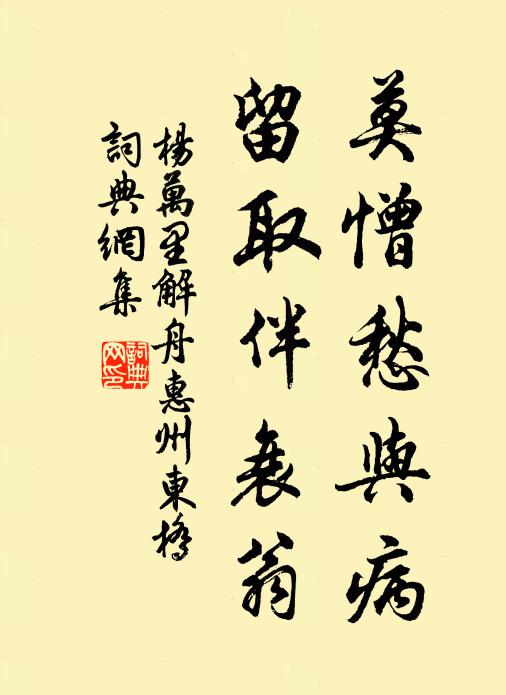 莫憎愁與病
留取伴衰翁
楊萬里解舟惠州東橋
詞典網集
詞典
网印